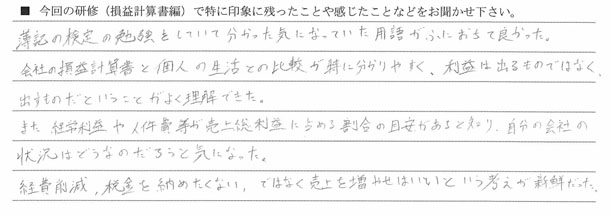 ■ 今回の研修（損益計算書編）で特に印象に残ったことや感じたことなどをお聞かせ下さい。
簿記の検定の勉強をしていて分かった気になっていた用語がふにおちて良かった。
会社の損益計算書と個人の生活との比較が特に分かりやすく、利益は出るものではなく、
出すものだということがよく理解できた。
また経常利益や人件費等が売上総利益に占める割合の目安があると知り、自分の会社の
状況はどうなのだろうと気になった。
経費削減，税金を納めたくない，ではなく売上を増やせばいいという考えが新鮮だった。